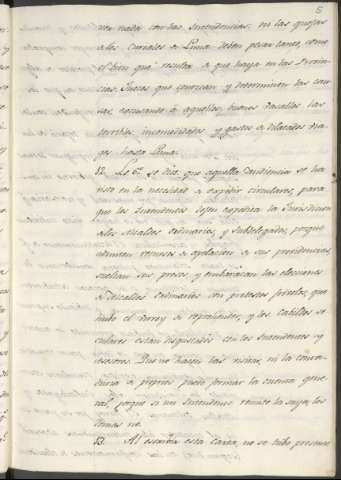 5
con nada con las Intendencias: ni las quejas
a los Curiales de Lima deben pesar tanto, como
el bien que resulta de que haya en las Provin-
cias Jueces que conozcan y determinen las cau-
sas, escusando á aquellos buenos vasallos las
terribles incomodidades y gastos de dilatados via-
ges hasta Lima.
12. Lo 6º se dice, que aquella Audiencia se ha
visto en la necesidad de expedir circulares, para
que los Intendentes dejen expedita la Jurisdiccion
a los Alcaldes ordinarios, y Subdelegados, porque
admiten recursos de apelacion de sus providencias,
sueltan sus presos, y embarazan las elecciones
de Alcaldes ordinarios con pretestos frívolos, que
hubo el Virrey de reprenderles, y los Cabildos se-
culares estan disgustados con los Intendentes y
Asesores. Que no hacen las visitas, ni la conta-
duria de propios puede formar la cuenta gene-
ral, porque si un Intendente remite la suya, los
demas no.
13. Al escribir esta Carta, no se tubo presente